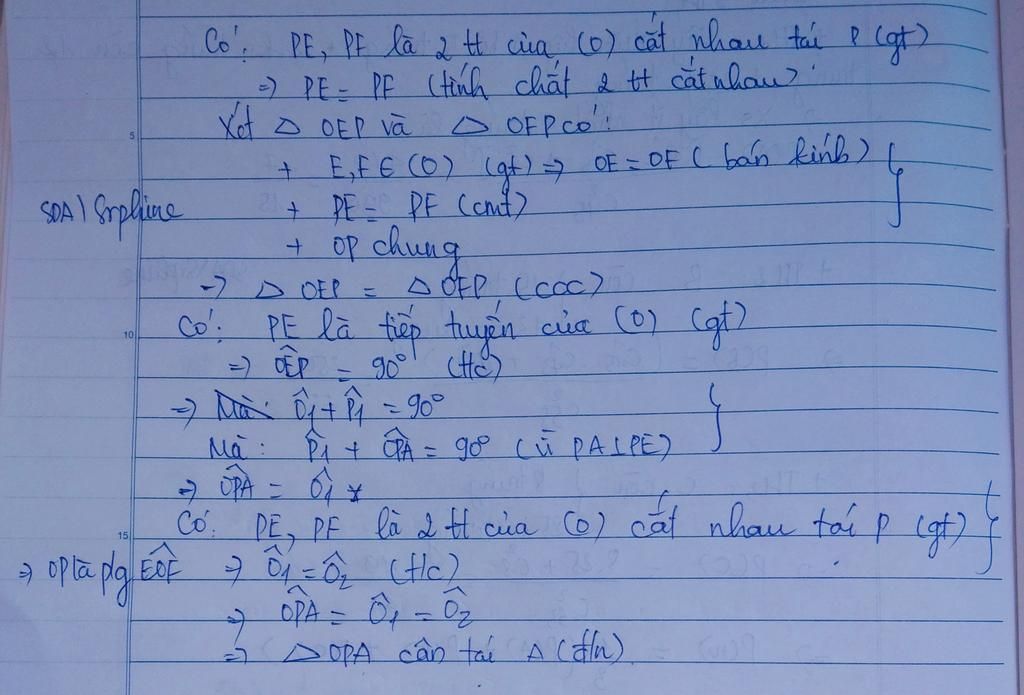 Có: PE, PF là 2 tt của (O) cắt nhau tại P (gt)
=> PE = PF (tính chất 2 tt cắt nhau)
Xét △ OEP và △ OFP có:
+ E, F ∈ (O) (gt) => OE = OF (bán kính)
SDA1Srphine + PE = PF (cmt)
+ OP chung
=> △ OEP = △ OFP (ccc)
Có: PE là tiếp tuyến của (O) (gt)
=> OÊP = 90° (t/c)
=> Ô1 + P̂1 = 90°
Mà: P̂1 + OP̂A = 90° (vì PA ⊥ PE)
=> OP̂A = Ô1 *
Có: PE, PF là 2 tt của (O) cắt nhau tại P (gt)
=> OP là p/g EÔF => Ô1 = Ô2 (t/c)
=> OP̂A = Ô1 = Ô2
=> △ OPA cân tại A (đ/n)